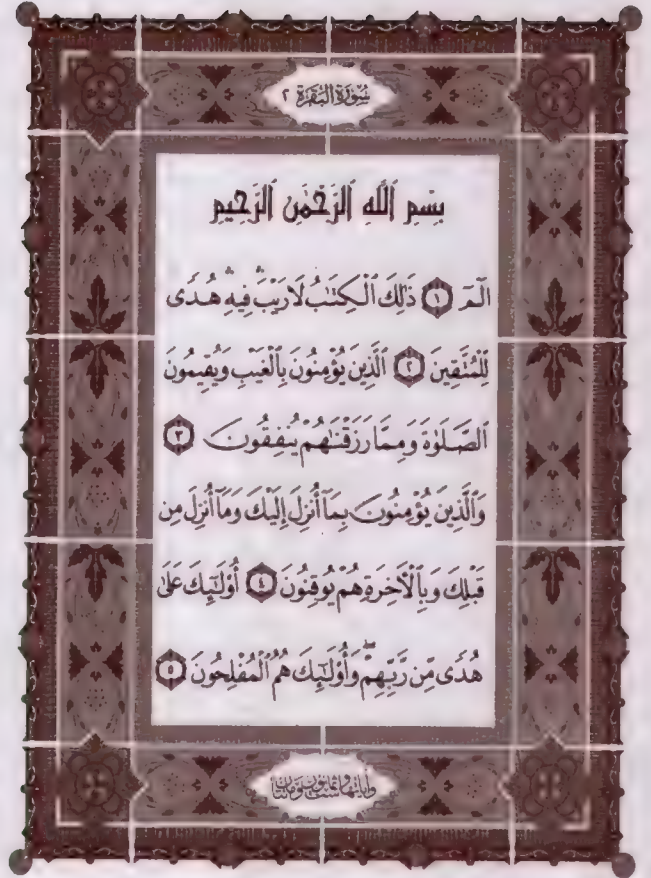 سُورَةُ البَقَرَةِ ٢
بِسْمِ ٱللَّهِ ٱلرَّحْمَٰنِ ٱلرَّحِيمِ
الٓمٓ ١ ذَٰلِكَ ٱلْكِتَٰبُ لَا رَيْبَ ۛ فِيهِ ۛ هُدًى
لِّلْمُتَّقِينَ ٢ ٱلَّذِينَ يُؤْمِنُونَ بِٱلْغَيْبِ وَيُقِيمُونَ
ٱلصَّلَوٰةَ وَمِمَّا رَزَقْنَٰهُمْ يُنفِقُونَ ٣
وَٱلَّذِينَ يُؤْمِنُونَ بِمَآ أُنزِلَ إِلَيْكَ وَمَآ أُنزِلَ مِن
قَبْلِكَ وَبِٱلْأَخِرَةِ هُمْ يُوقِنُونَ ٤ أُو۟لَٰٓئِكَ عَلَىٰ
هُدًى مِّن رَّبِّهِمْ ۖ وَأُو۟لَٰٓئِكَ هُمُ ٱلْمُفْلِحُونَ ٥
وآياتها ست وثمانون ومئتان